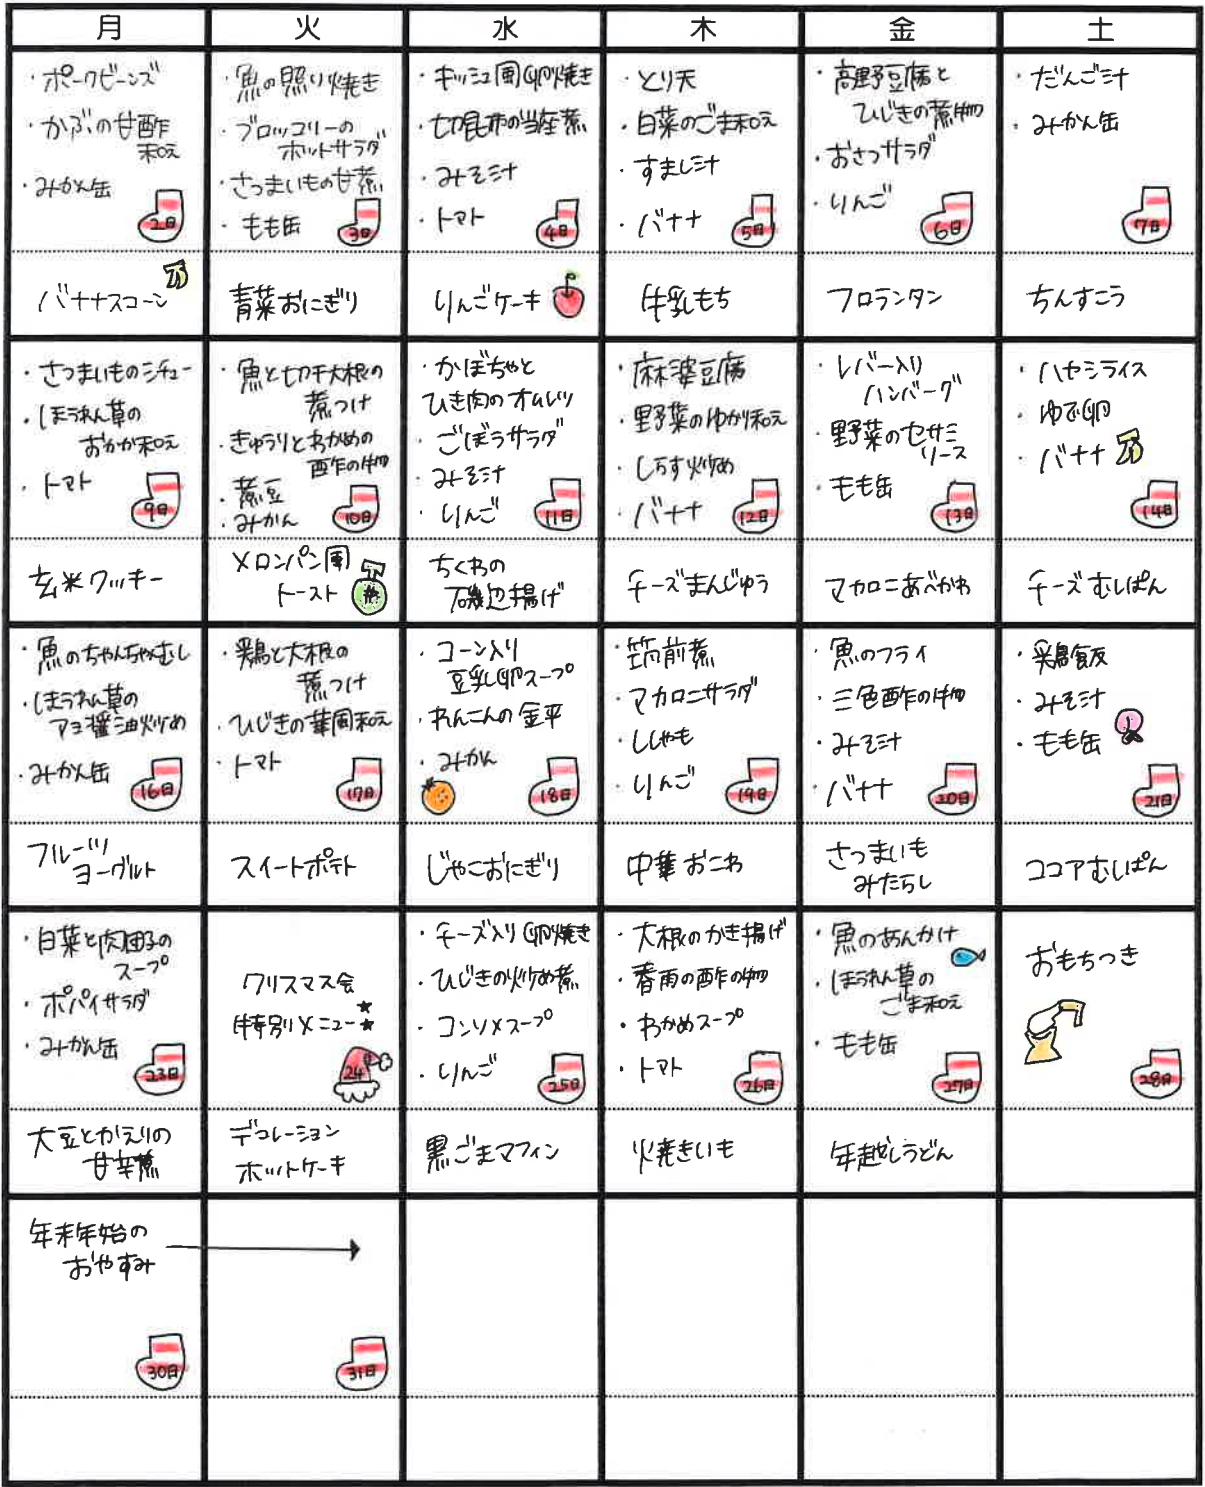 月 火 水 木 金 土
・ポークビーンズ
・かぶの甘酢
和え
・みかん缶
2日
・魚の照り焼き
・ブロッコリーの
ホットサラダ
・さつまいもの甘煮
・もも缶
3日
・キッシュ風卵焼き
・切昆布の当座煮
・みそ汁
・トマト
4日
・とり天
・白菜のごま和え
・すまし汁
・バナナ
5日
・高野豆腐と
ひじきの煮物
・おさつサラダ
・りんご
6日
・だんご汁
・みかん缶
7日
バナナスコーン
青菜おにぎり
りんごケーキ
牛乳もち
フロランタン
ちんすこう
・さつまいものシチュー
・ほうれん草の
おかか和え
・トマト
9日
・魚と切干大根の
煮つけ
・きゅうりとわかめの
酢の物
・煮豆
・みかん
10日
・かぼちゃと
ひき肉のオムレツ
・ごぼうサラダ
・みそ汁
・りんご
11日
・麻婆豆腐
・野菜のゆかり和え
・しらす炒め
・バナナ
12日
・レバー入り
ハンバーグ
・野菜のセサミ
ソース
・もも缶
13日
・ハヤシライス
・ゆで卵
・バナナ
14日
玄米クッキー
メロンパン風
トースト
ちくわの
磯辺揚げ
チーズまんじゅう
マカロニあべかわ
チーズむしぱん
・魚のちゃんちゃんむし
・ほうれん草の
マヨ醤油炒め
・みかん缶
16日
・鶏と大根の
煮つけ
・ひじきの華風和え
・トマト
17日
・コーン入り
豆乳卵スープ
・れんこんの金平
・みかん
18日
・筑前煮
・マカロニサラダ
・ししゃも
・りんご
19日
・魚のフライ
・三色酢の物
・みそ汁
・バナナ
20日
・鶏飯
・みそ汁
・もも缶
21日
フルーツ
ヨーグルト
スイートポテト
じゃこおにぎり
中華おこわ
さつまいも
みたらし
ココアむしぱん
・白菜と肉団子の
スープ
・ポパイサラダ
・みかん缶
23日
クリスマス会
特別メニュー★
24
・チーズ入り卵焼き
・ひじきの炒め煮
・コンソメスープ
・りんご
25日
・大根のかき揚げ
・春雨の酢の物
・わかめスープ
・トマト
26日
・魚のあんかけ
・ほうれん草の
ごま和え
・もも缶
27日
おもちつき
28日
大豆とかえりの
甘辛煮
デコレーション
ホットケーキ
黒ごまマフィン
焼きいも
年越しうどん
年末年始の
おやすみ
30日
31日